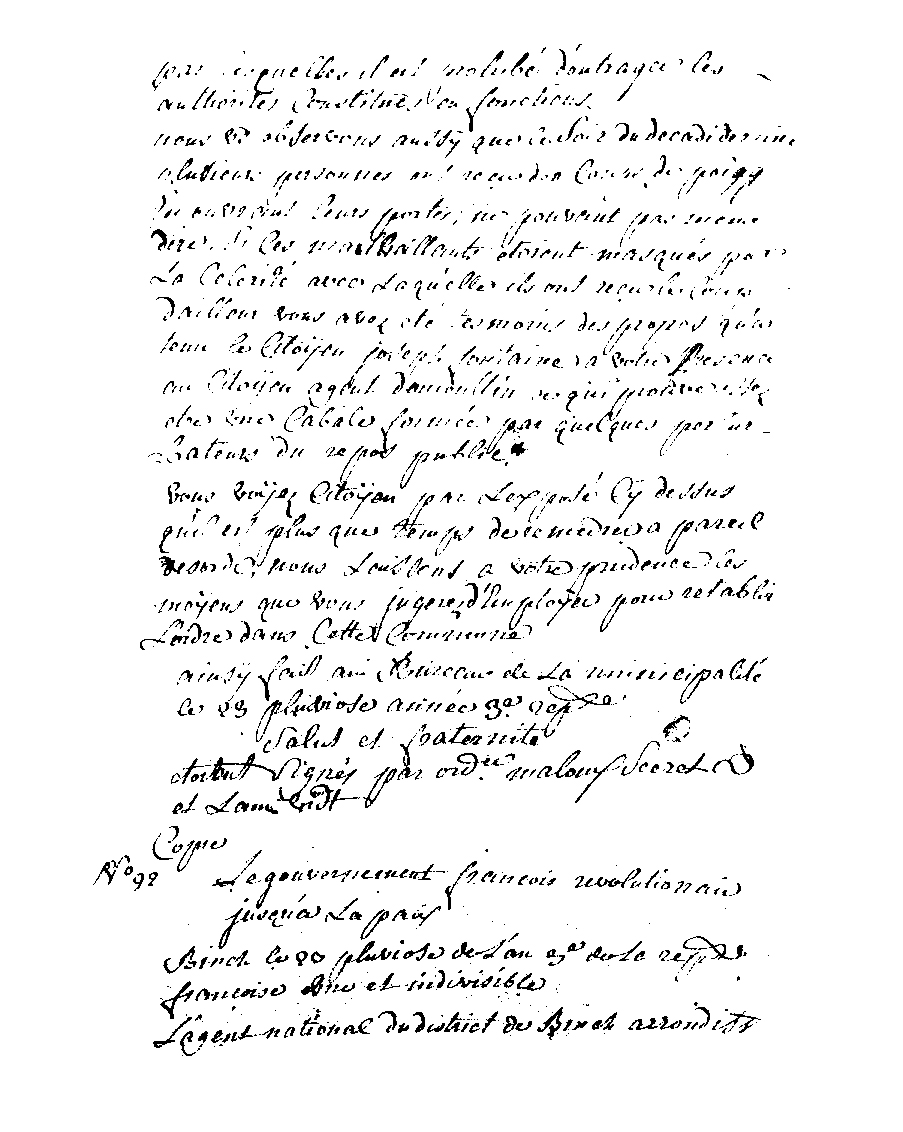 par lesquelles il est prohibé d'outrager les
authorités Constitués en fonctions.
nous vs observons aussÿ que le Soir du decadi dernier
plusieurs personnes ont reçu des Coups de poigg
En ouvrant leurs portes, ne pouvant pas meme
dire Si Ces malveillants étoient masqués par
La Celerité avec Laquelle ils ont reçu les Coups
Dailleur vous avez été temoins des propos qu'a
tenu le Citoÿen joseph fontaine a votre Presence
au Citoÿen agent Damoullin ce qui prouve assez
etre une Cabale formée par quelques pertur-
Bateurs du repos public
vous voÿez Citoÿen par L'exposé Cy dessus
qu'il est plus que temps de remedier a pareil
desordre, nous Laissons a votre prudence les
moÿens que vous jugerez d'Emploÿer pour retablir
L'ordre dans Cette Commune
ainsÿ fait au Bureau de La municipalité
le 23 pluviose année 3e repde
Salut et fraternité
etoient Signés par ordce Secret
et
Copie
No 92 Le gouvernement francois revolutionair
jusqu'a La paix
Binch le 20 pluviose de L'an 3e de la repde
francoise une et indivisible
L'agent national du district de Binch arrondist